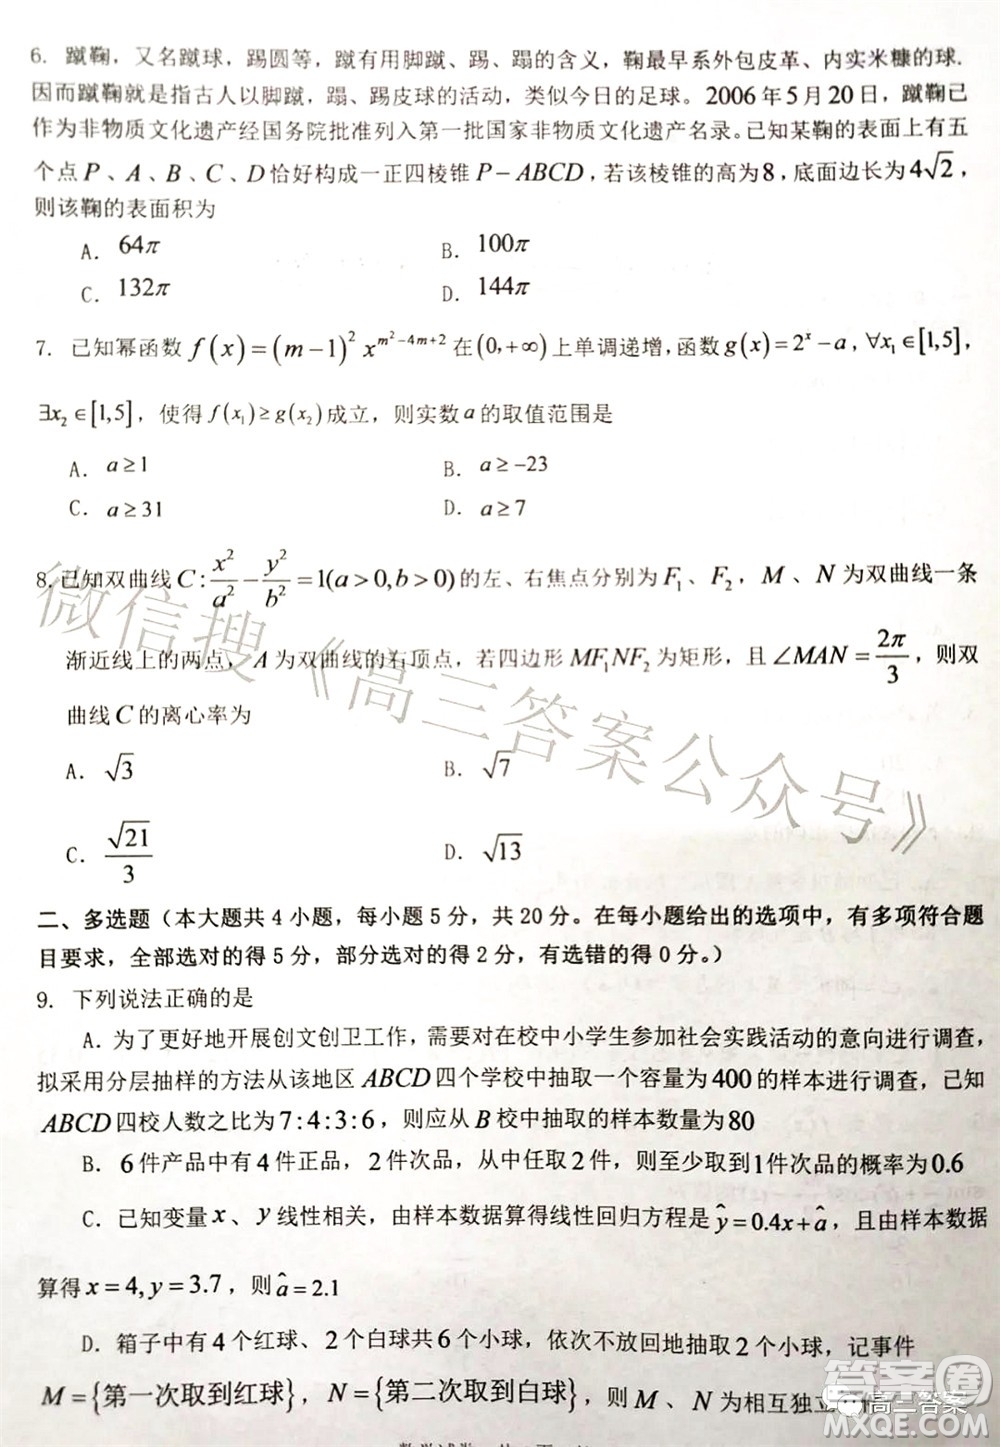 6. 蹴鞠，又名蹴球，踢圆等，蹴有用脚蹴、踢、蹋的含义，鞠最早系外包皮革、内实米糠的球.
因而蹴鞠就是指古人以脚蹴，蹋、踢皮球的活动，类似今日的足球。2006年5月20日，蹴鞠已
作为非物质文化遗产经国务院批准列入第一批国家非物质文化遗产名录。已知某鞠的表面上有五
个点 P、A、B、C、D 恰好构成一正四棱锥 P－ABCD，若该棱锥的高为8，底面边长为4√2，
则该鞠的表面积为
A. 64π B. 100π
C. 132π D. 144π
7. 已知幂函数 f(x)=(m−1)² x^{m²−4m+2} 在(0,+∞)上单调递增，函数g(x)=2^x−a，∀x₁∈[1,5]，
∃x₂∈[1,5]，使得 f(x₁)≥g(x₂)成立，则实数a的取值范围是
A. a≥1 B. a≥−23
C. a≥31 D. a≥7
8.已知双曲线C:x²/a²−y²/b²=1(a>0,b>0)的左、右焦点分别为F₁、F₂，M、N为双曲线一条
渐近线上的两点，A为双曲线的右顶点，若四边形MF₁NF₂为矩形，且∠MAN=2π/3，则双
曲线C的离心率为
A. √3 B. √7
C. √21/3 D. √13
二、多选题（本大题共4小题，每小题5分，共20分。在每小题给出的选项中，有多项符合题
目要求，全部选对的得5分，部分选对的得2分，有选错的得0分。）
9. 下列说法正确的是
A．为了更好地开展创文创卫工作，需要对在校中小学生参加社会实践活动的意向进行调查，
拟采用分层抽样的方法从该地区ABCD四个学校中抽取一个容量为400的样本进行调查，已知
ABCD四校人数之比为7:4:3:6，则应从B校中抽取的样本数量为80
B．6件产品中有4件正品，2件次品，从中任取2件，则至少取到1件次品的概率为0.6
C．已知变量x、y线性相关，由样本数据算得线性回归方程是ŷ=0.4x+â，且由样本数据
算得x=4,y=3.7，则â=2.1
D．箱子中有4个红球、2个白球共6个小球，依次不放回地抽取2个小球，记事件
M={第一次取到红球}，N={第二次取到白球}，则M、N为相互独立事件
微信搜《高三答案公众号》
答案圈
高三答案
MXQE.COM